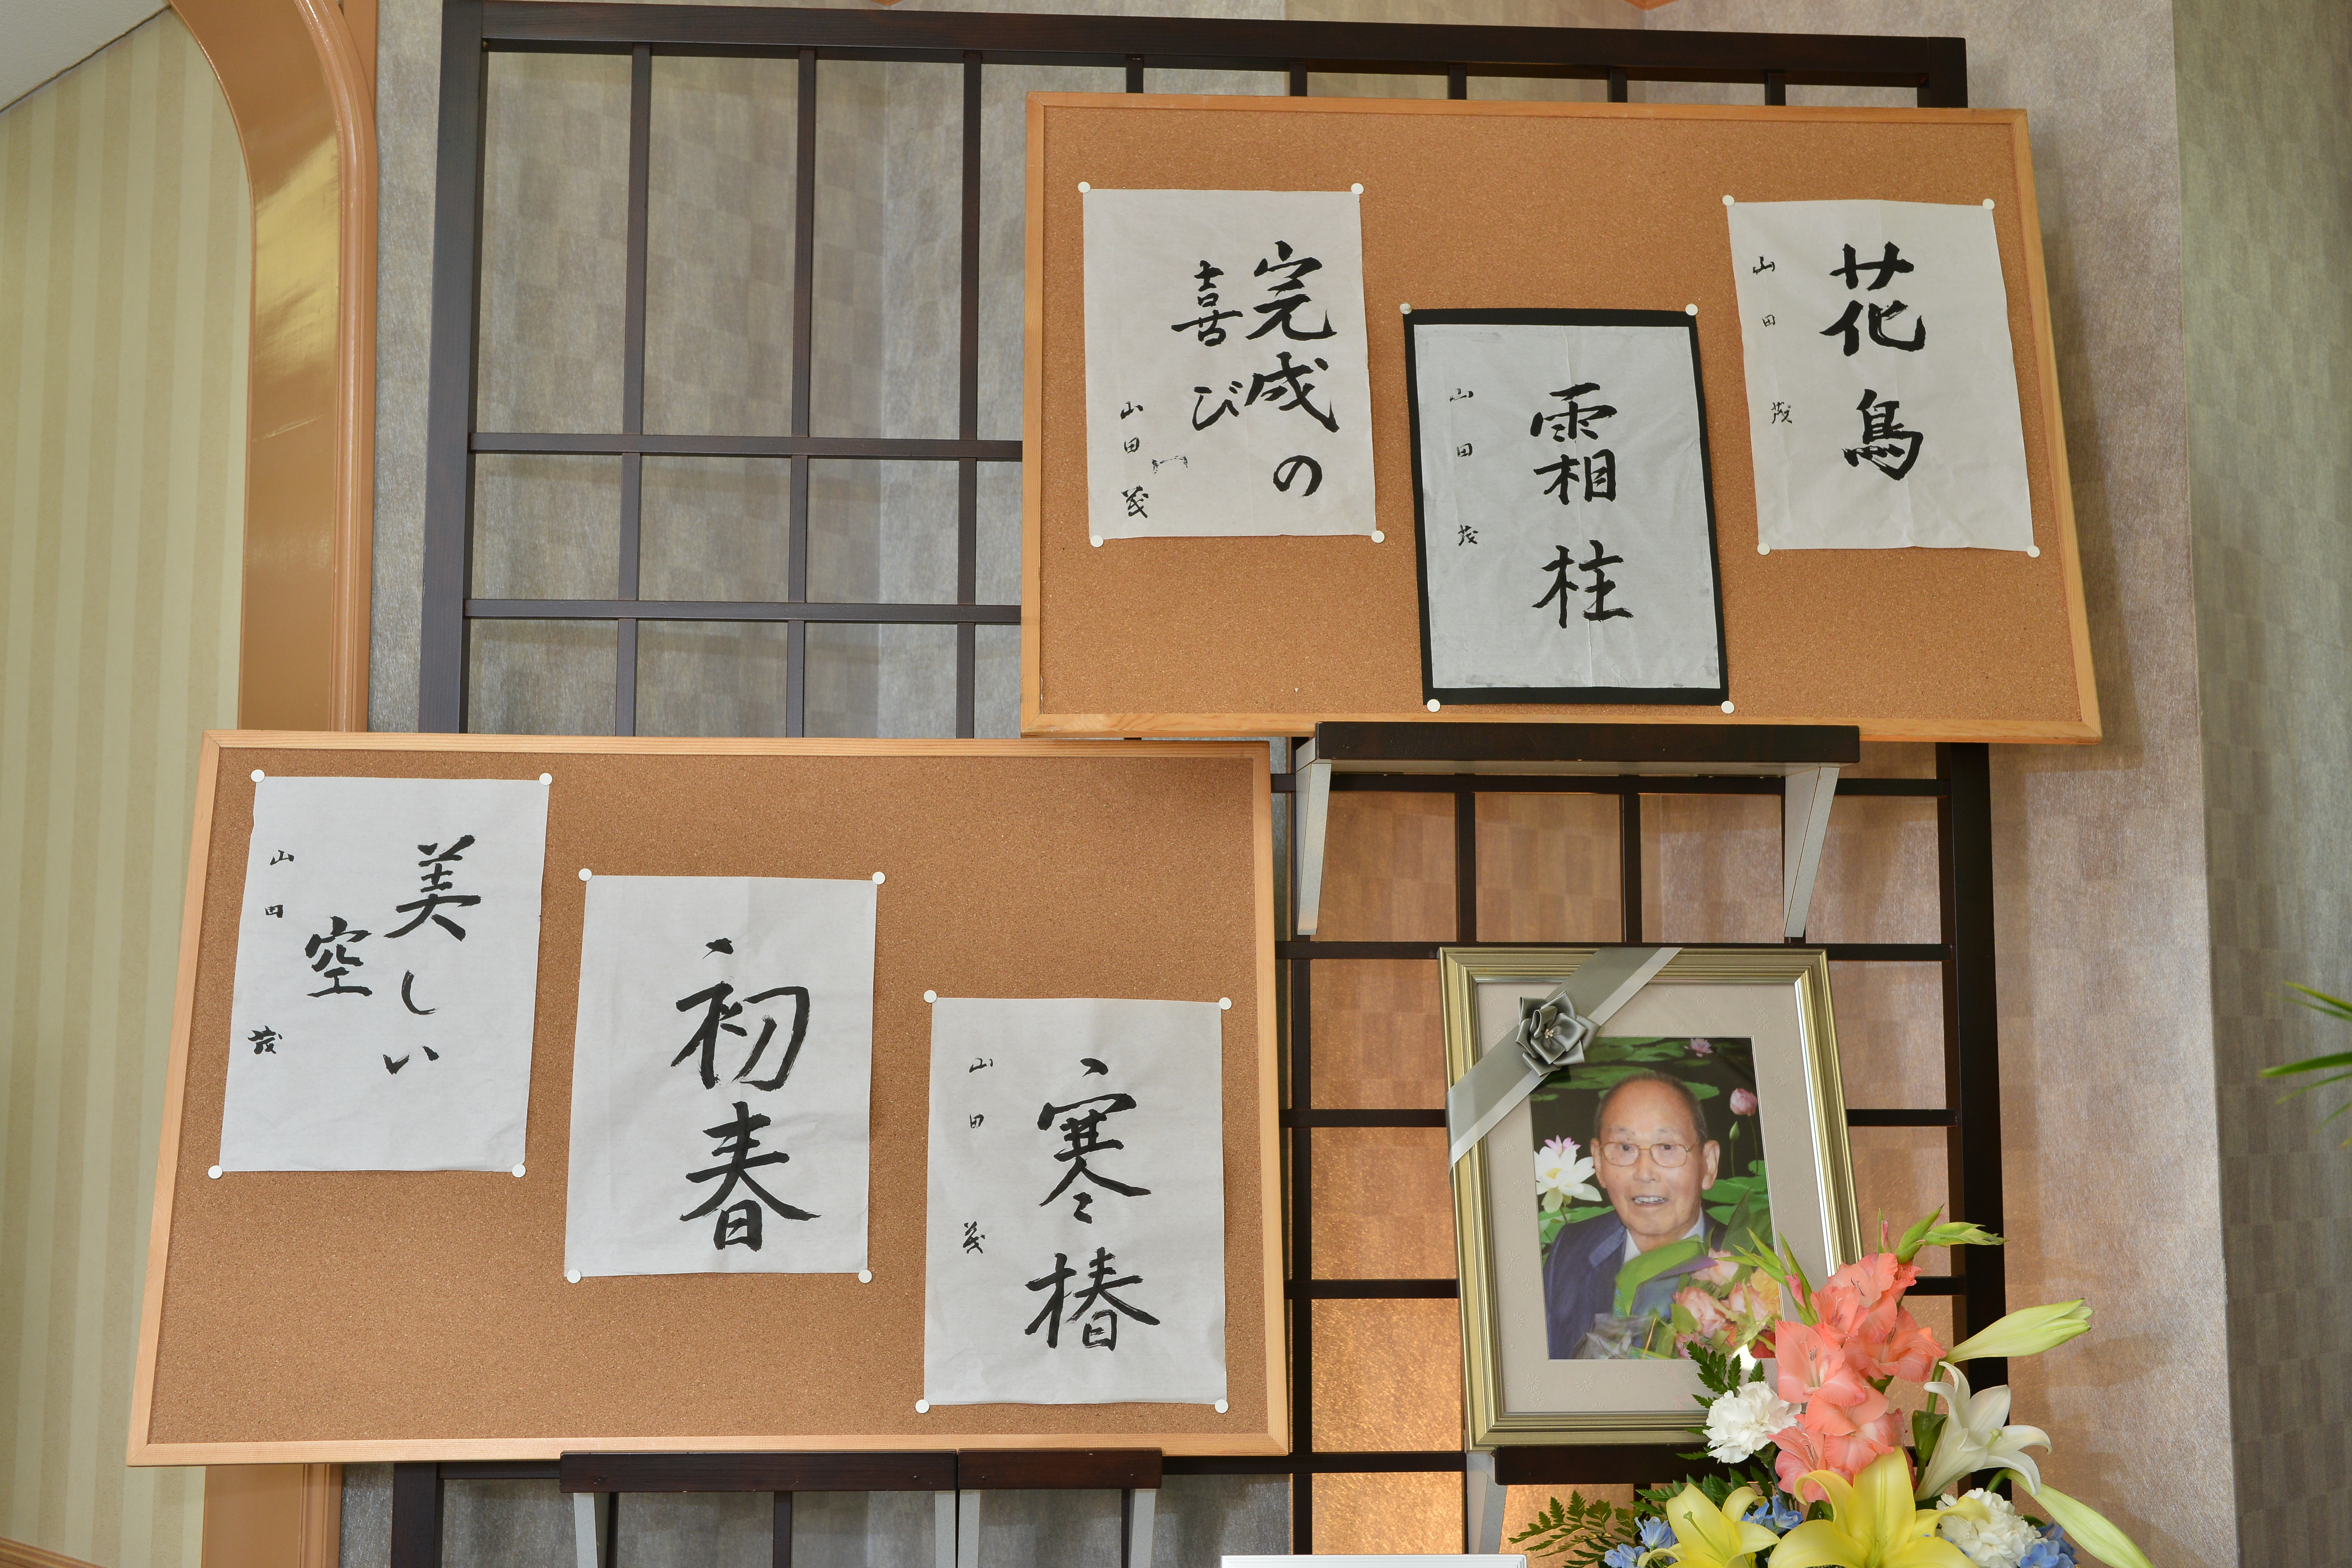 花鳥
山田茂
霜柱
山田茂
完成の
喜び
山田茂
寒椿
山田茂
初春
美しい
空
山田茂